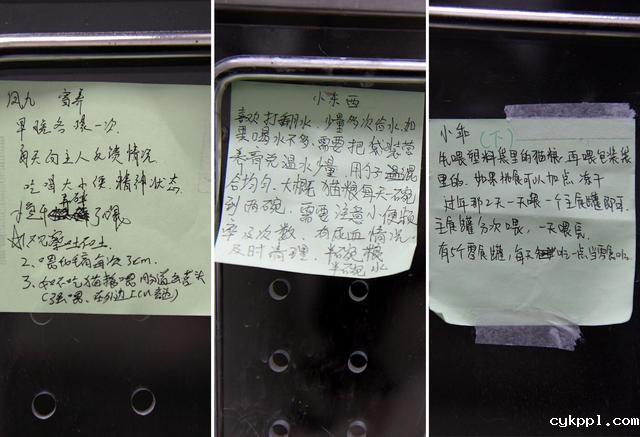 凤九 寄养
早晚各喂一次
每天向主人反馈情况
吃喝大小便、精神状态
观察吐不吐
2、喂化毛膏每次3cm.
3、如不吃猫粮喂肠道处方
小东西
喜欢打翻水,少量多次给水,如
果喝水不多,需要把袋装营
养膏先温水少量,用勺子
合均匀。大概猫粮每天一碗
到两碗,需要注意小便频
率及次数,有尿血情况
及时清理,半碗粮
半碗水
小乖(下)
先喂塑料袋里的猫粮,再喂包装袋
里的,如果挑食可以加点冻干
过年那2天一天喂一个主食罐即可
主食罐多次喂,一天喂完
有个零食罐,每天吃一点,当零食吃。
cykppl.com